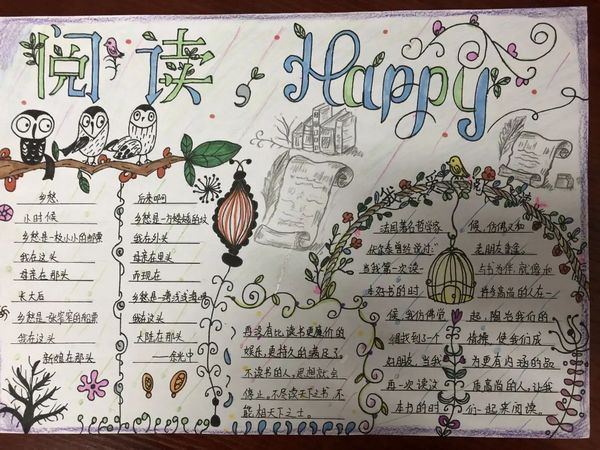 阅读，Happy
乡愁
小时候
乡愁是一枚小小的邮票
我在这头
母亲在那头
长大后
乡愁是一张窄窄的船票
我在这头
新娘在那头
后来啊
乡愁是一方矮矮的坟
我在外头
母亲在里头
而现在
乡愁是一湾浅浅海峡
我在这头
大陆在那头
——余光中
再没有比读书更廉价的
娱乐，更持久的满足了。
不读书的人，思想就会
停止。不尽读天下书，不
能相天下之士。
法国著名哲学家
伏尔泰曾经说过：
当我第一次读一
本好书的时
候，我仿佛觉
得找到了一个
好朋友，当我
再一次读这
本书的时
候，仿佛又和
老朋友重逢。
与书为伴，就像和
许多高尚的人在一
起，陶冶我们的
情操，使我们成
为更有内涵的品
质高尚的人，让我
们一起来阅读。